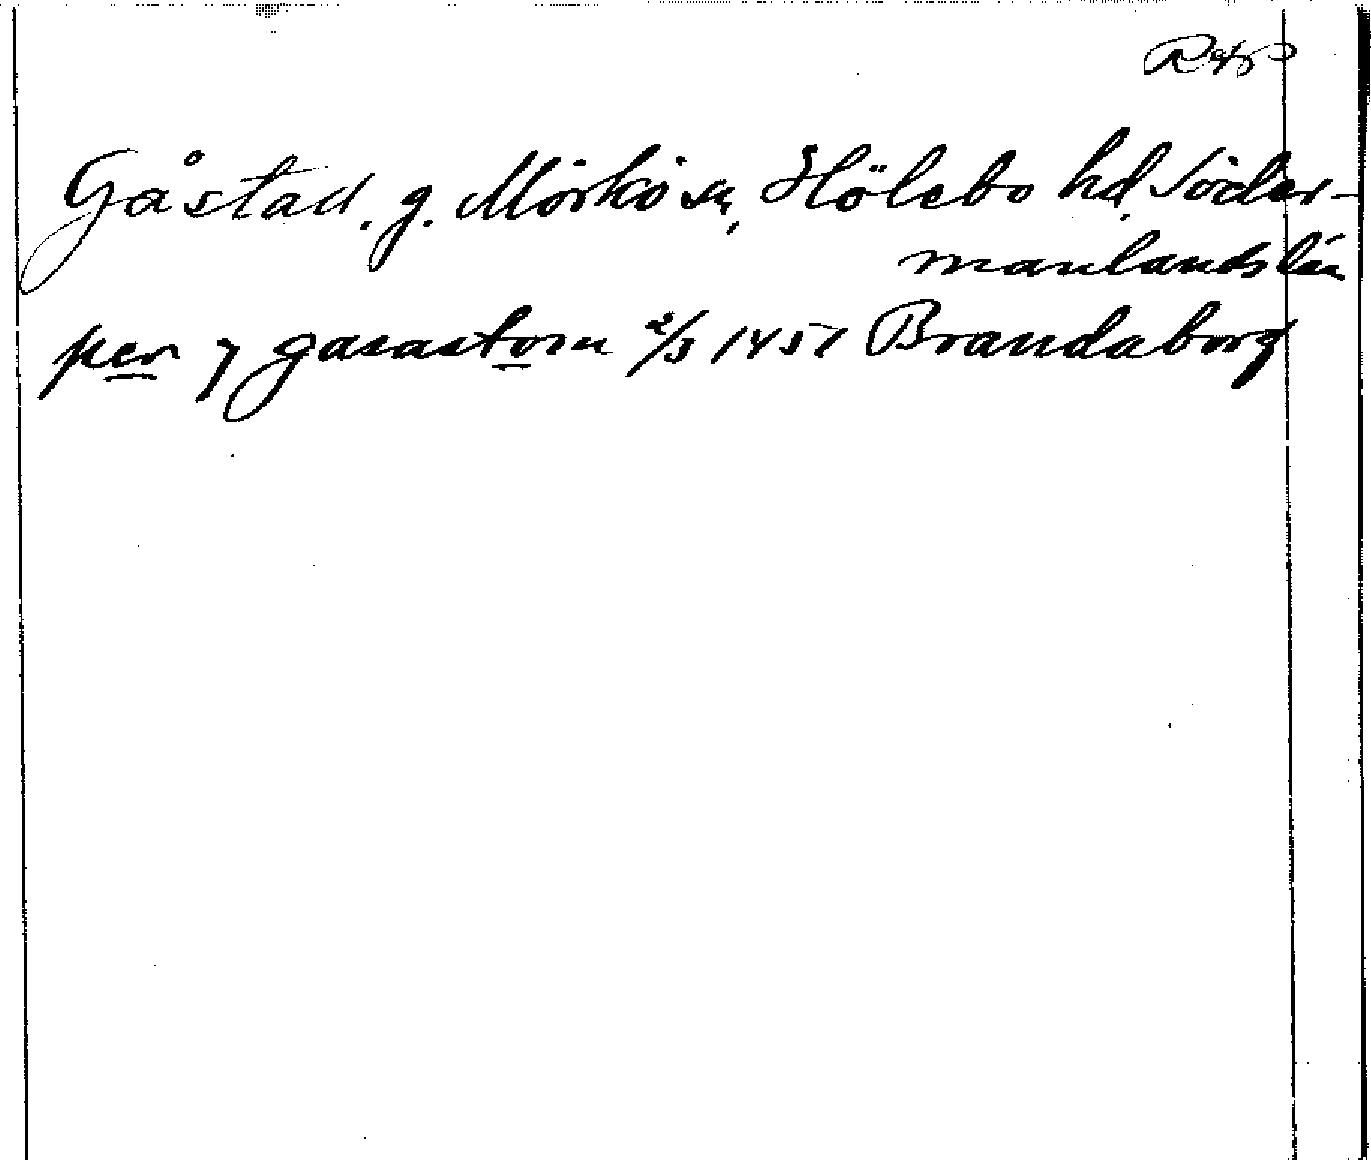 Gåstad. g. Mörkö sn, Hölebo hd, Söder-
manlands län
per j gasastom 2/3 1451 Brandaborg